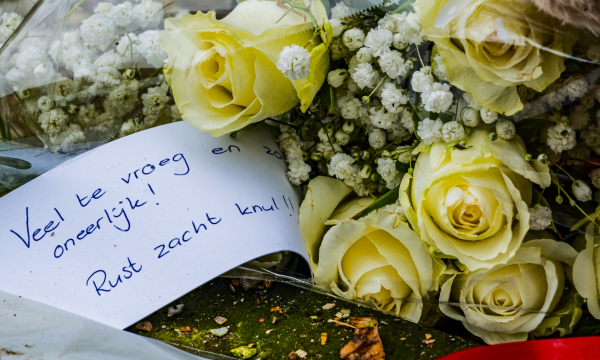 Veel te vroeg en zo
oneerlijk!
Rust zacht knul!!